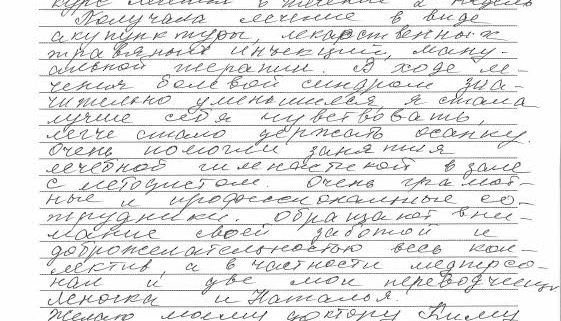 курс лечения в течение 2 недель
Получала лечение в виде
акупунктуры, лекарственных
травяных инъекций, ману-
альной терапии. В ходе ле-
чения болевой синдром зна-
чительно уменьшился, я стала
лучше себя чувствовать,
легче стало держать осанку.
Очень помогли занятия
лечебной гимнастикой в зале
с методистом. Очень грамот-
ные и профессиональные со-
трудники. Обращают вни-
мание своей заботой и
доброжелательностью весь кол-
лектив, а в частности медперсо-
нал и две мои переводчицы
Леночка и Наталья.
Желаю моему доктору Киму